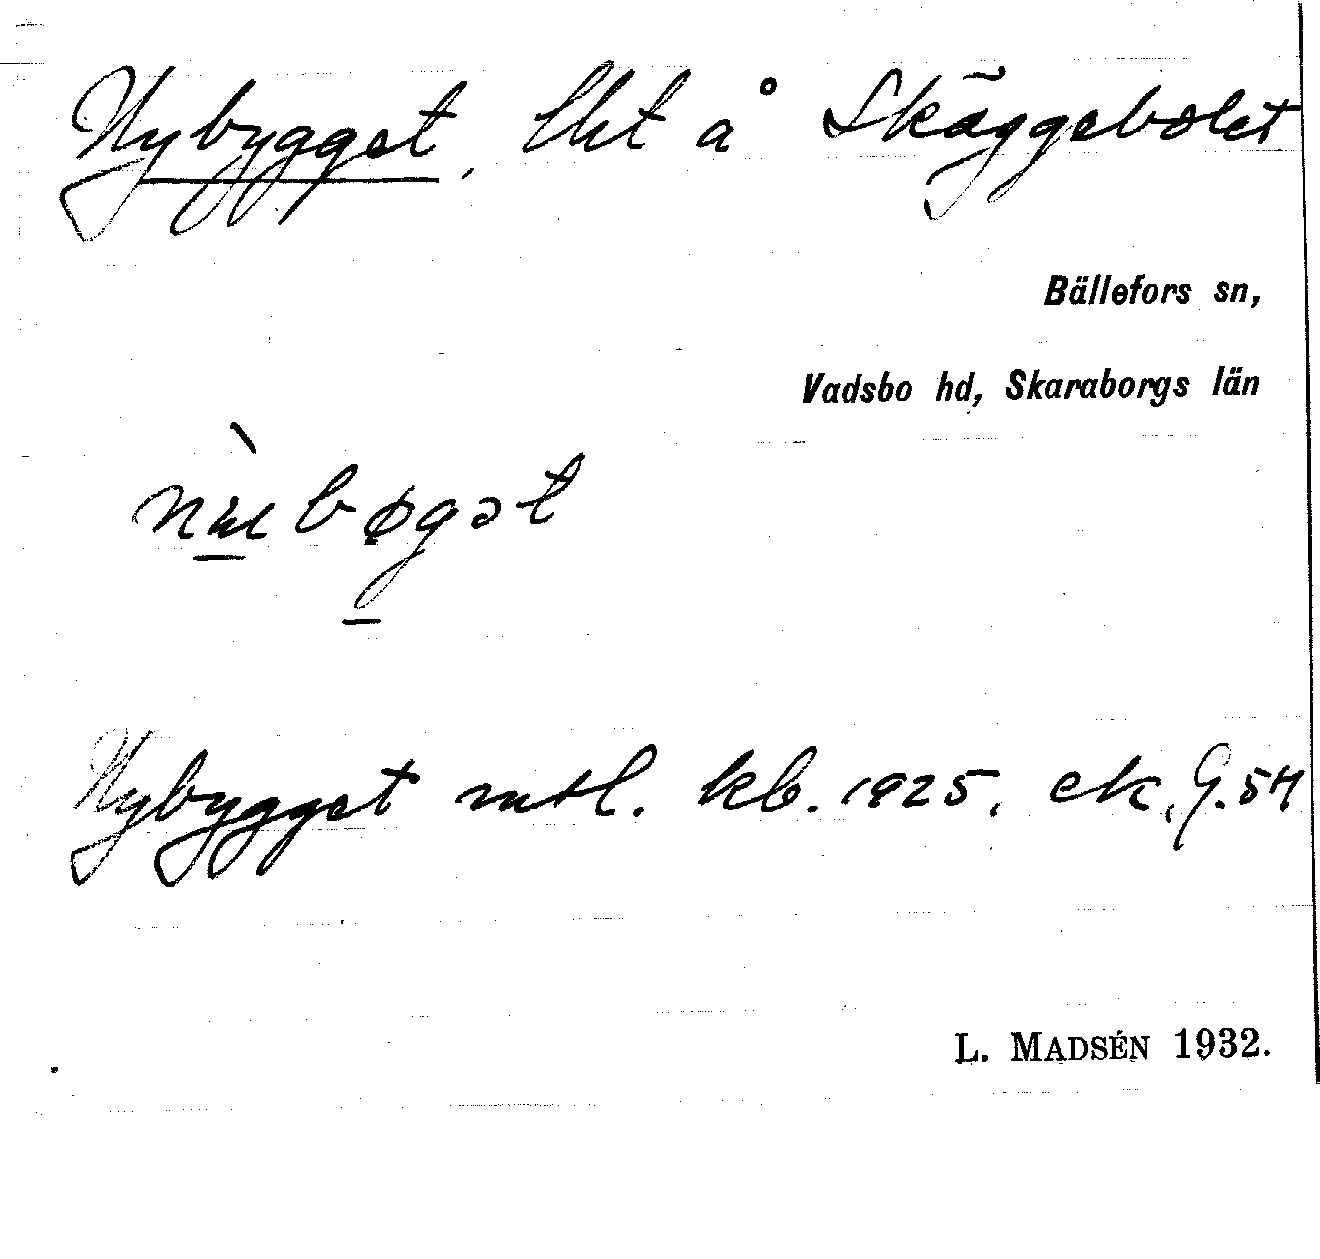 Nybygget, lht å Skäggebolet
Bällefors sn,
Vadsbo hd, Skaraborgs län
Nybygget mtl. kb. 1925, ek. G. 57
L. MADSÉN 1932.